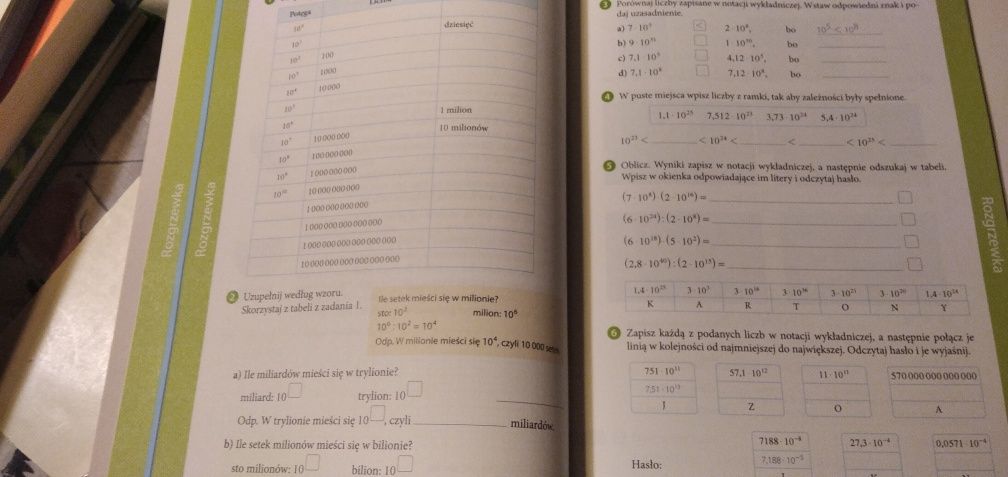 Potęga
10⁰
dziesięć
10¹
10² 100
10³ 1000
10⁴ 10 000
10⁵
1 milion
10⁶
10 milionów
10⁷ 10 000 000
10⁸ 100 000 000
10⁹ 1 000 000 000
10¹⁰ 10 000 000 000
1 000 000 000 000
1 000 000 000 000 000
1 000 000 000 000 000 000
10 000 000 000 000 000 000
Rozgrzewka
Rozgrzewka
2 Uzupełnij według wzoru.
Skorzystaj z tabeli z zadania 1.
Ile setek mieści się w milionie?
sto: 10² milion: 10⁶
10⁶ : 10² = 10⁴
Odp. W milionie mieści się 10⁴, czyli 10 000 setek
a) Ile miliardów mieści się w trylionie?
miliard: 10 trylion: 10
Odp. W trylionie mieści się 10 , czyli miliardów.
b) Ile setek milionów mieści się w bilionie?
sto milionów: 10 bilion: 10
3 Porównaj liczby zapisane w notacji wykładniczej. Wstaw odpowiedni znak i po-
daj uzasadnienie.
a) 7 · 10⁵ < 2 · 10⁸, bo 10⁵ < 10⁸
b) 9 · 10³¹ 1 · 10³⁰, bo
c) 7,1 · 10⁵ 4,12 · 10⁵, bo
d) 7,1 · 10⁸ 7,12 · 10⁸, bo
4 W puste miejsca wpisz liczby z ramki, tak aby zależności były spełnione.
1,1 · 10²⁵ 7,512 · 10²³ 3,73 · 10²⁴ 5,4 · 10²⁴
10²³ < < 10²⁴ < < < 10²⁵ <
5 Oblicz. Wyniki zapisz w notacji wykładniczej, a następnie odszukaj w tabeli.
Wpisz w okienka odpowiadające im litery i odczytaj hasło.
(7 · 10⁸) · (2 · 10¹⁶) =
(6 · 10²⁴) : (2 · 10⁸) =
(6 · 10¹⁸) · (5 · 10²) =
(2,8 · 10⁴⁰) : (2 · 10¹⁵) =
1,4 · 10²⁵ 3 · 10³ 3 · 10¹⁶ 3 · 10³⁶ 3 · 10²¹ 3 · 10²⁰ 1,4 · 10²⁴
K A R T O N Y
Rozgrzewka
6 Zapisz każdą z podanych liczb w notacji wykładniczej, a następnie połącz je
linią w kolejności od najmniejszej do największej. Odczytaj hasło i je wyjaśnij.
751 · 10¹¹ 57,1 · 10¹² 11 · 10¹¹ 570 000 000 000 000
7,51 · 10¹³
J Z O A
7188 · 10⁻⁸ 27,3 · 10⁻⁴ 0,0571 · 10⁻⁴
7,188 · 10⁻⁵
Hasło: